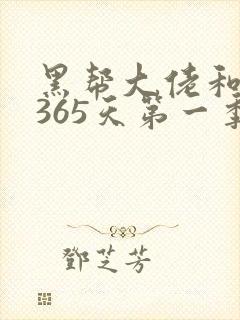 黑帮大佬和
365天第一季
鄧芝芳